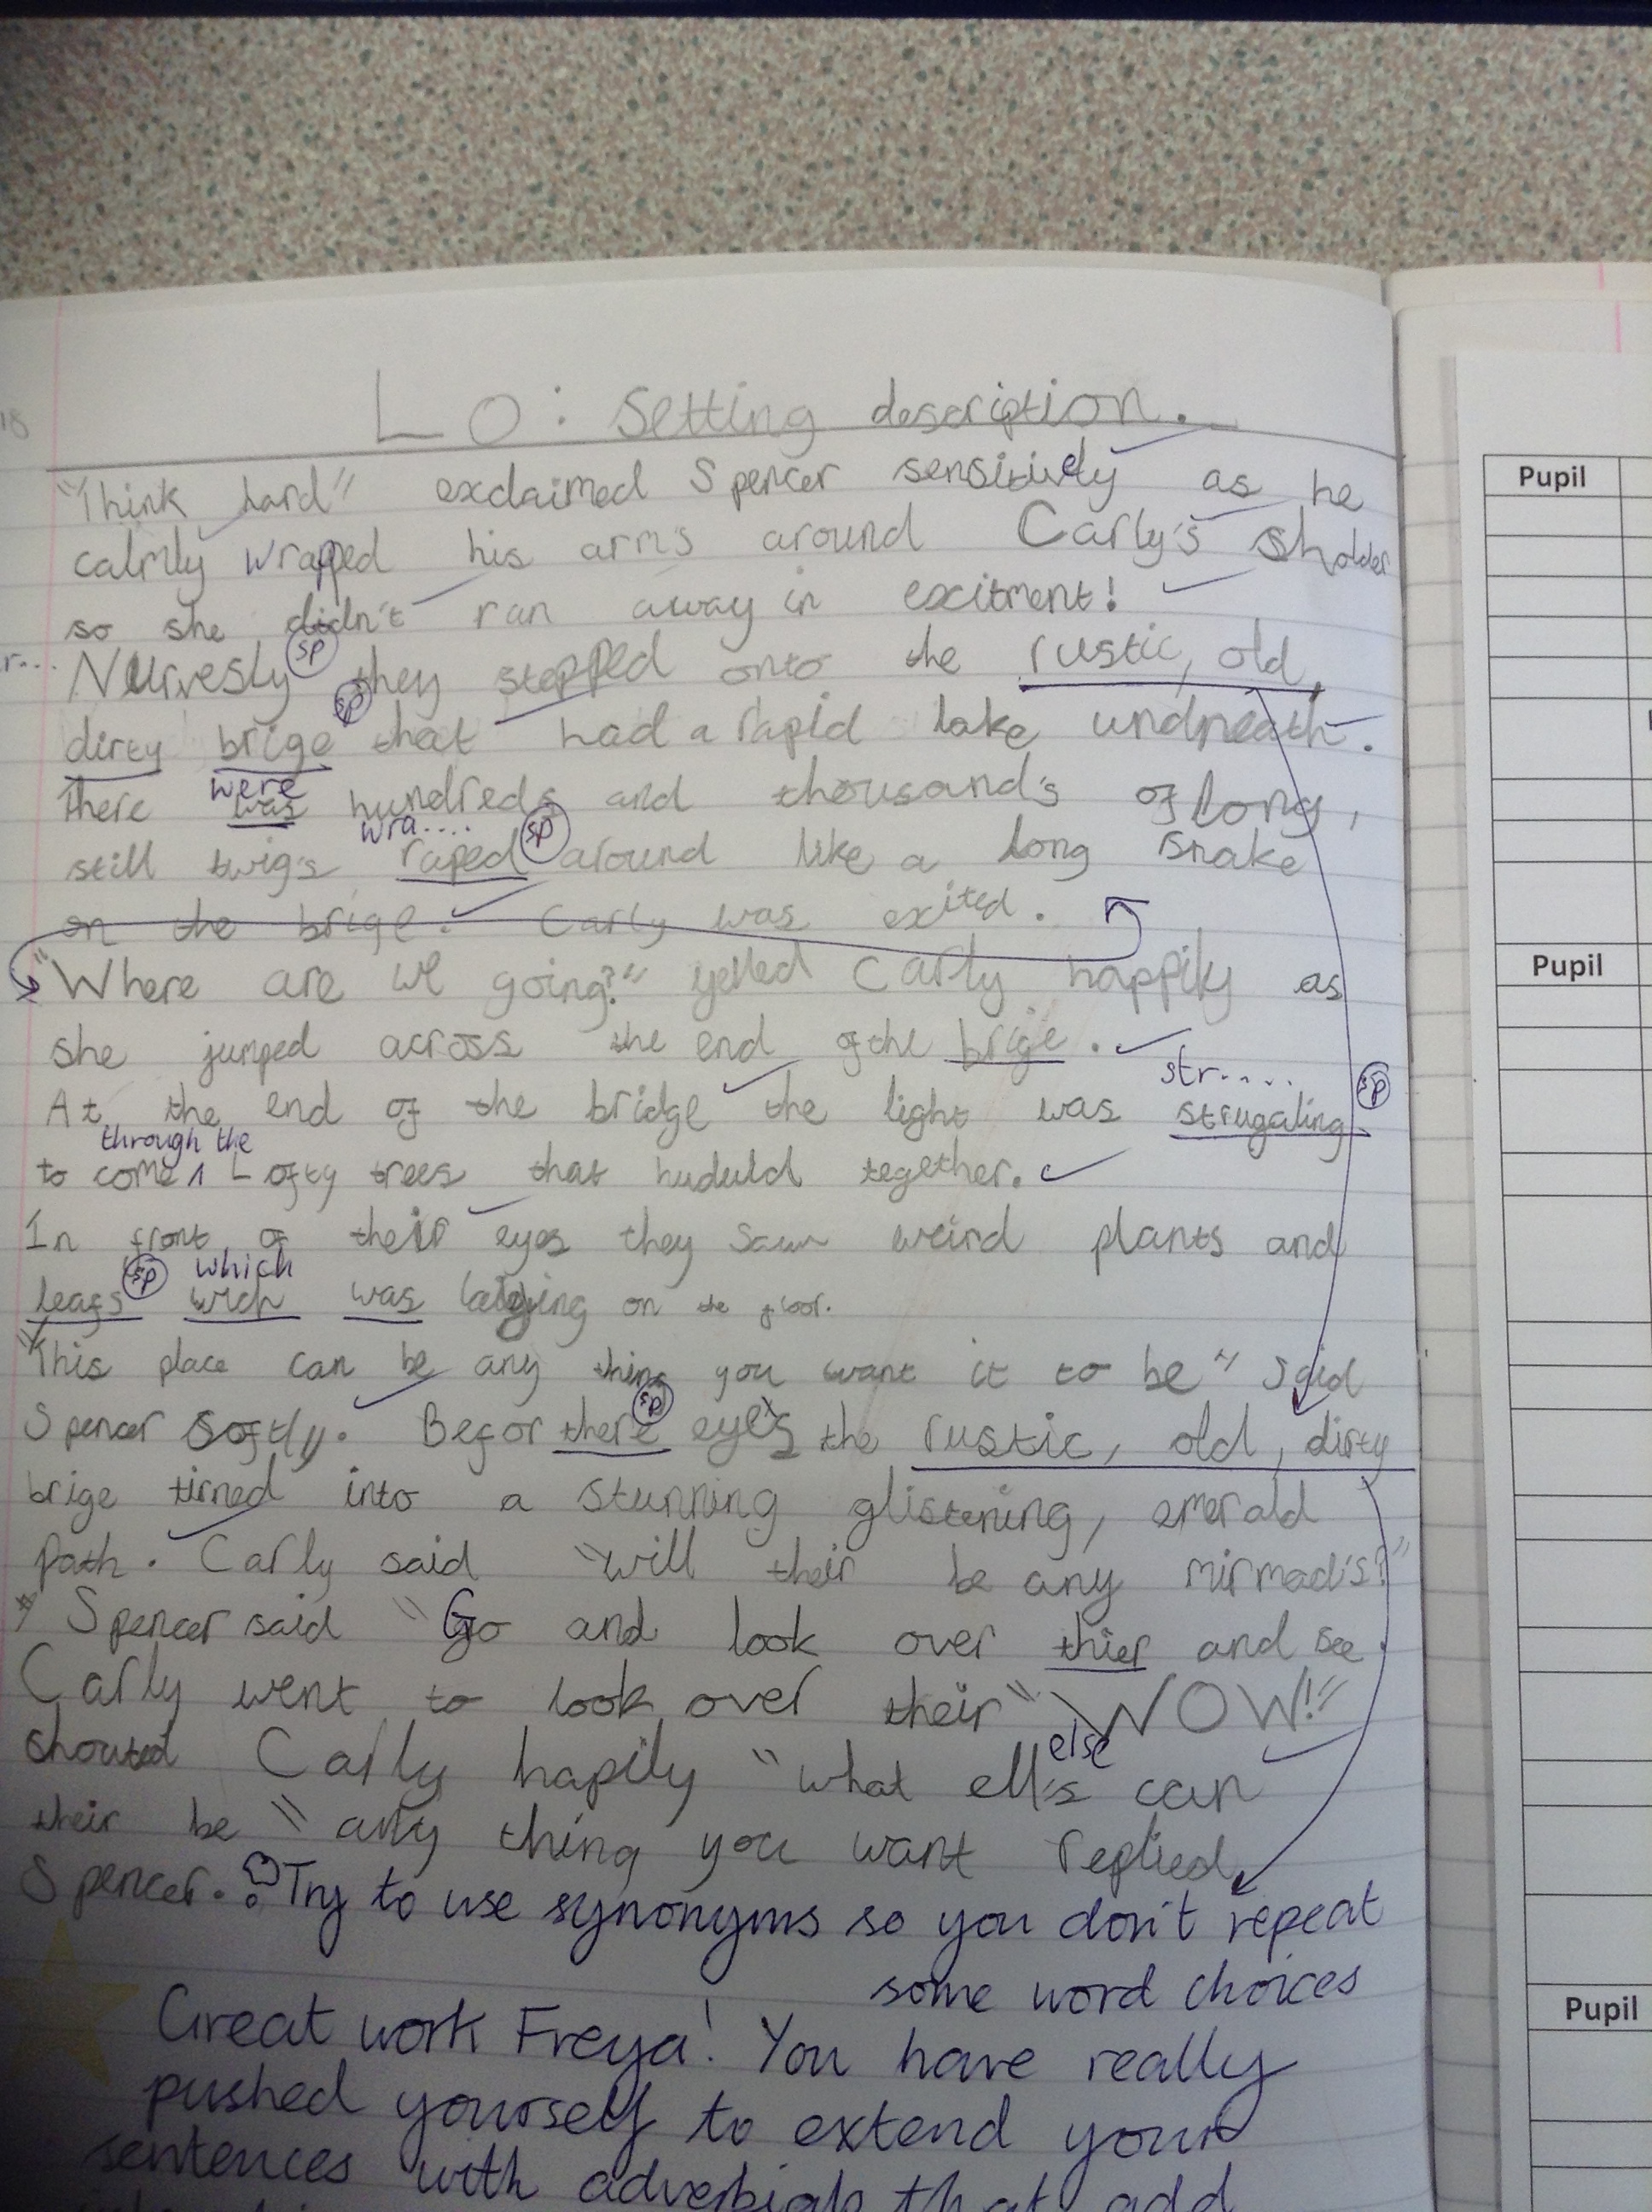 LO: Setting description.
"Think hard" exclaimed Spencer sensitively as he
calmly wrapped his arms around Carly's sholder
so she didn't ran away in excitment!
r... Nurvesly sp they stepped onto the rustic, old,
dirty brige sp that had a rapid lake undneath.
were
There was hundreds and thousand's of long,
wra....
still twigs raped sp around like a long snake
on the brige. Carly was excited.
"Where are we going?" yelled Carly happily as
she jumped across the end of the brige.
str.....
At the end of the bridge the light was strugaling sp
through the
to come Lofty trees that huduld together.
In front of their eyes they saw weird plants and
sp which
leafs wich was laying on the floor.
"This place can be any thing you want it to be" said
Spencer softly. Befor there sp eyes the rustic, old, dirty
brige tirned into a stunning glistening, emerald
path. Carly said "will their be any mirmad's?"
Spencer said "Go and look over thier and see.
Carly went to look over their "WOW!"
else
shouted Carly happily "what ell's can
their be" any thing you want replied
Spencer. Try to use synonyms so you don't repeat
some word choices
Great work Freya! You have really
pushed yourself to extend your
sentences with adverbials that add
Pupil
Pupil
Pupil